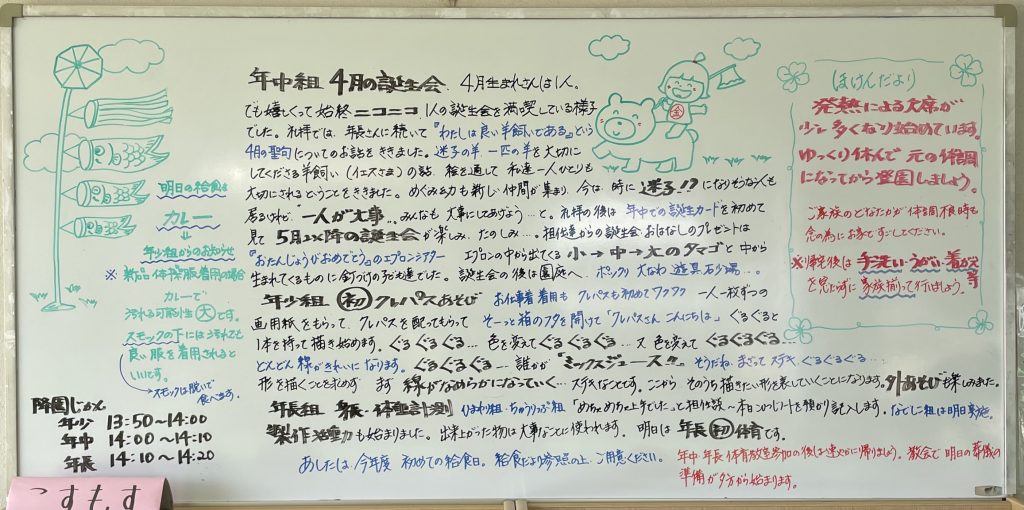 年中組 4月の誕生会. 4月生まれさんは1人.
でも嬉しくって始終ニコニコ 1人の誕生会を満喫している様子
でした。礼拝では、年長さんに続いて『わたしは良い羊飼いである。』という
4月の聖句についてのお話をききました。迷子の羊 一匹の羊を大切に
してくださる羊飼い(イエスさま)の話、を通して 私達一人ひとりも
大切にされるということをききました。めぐみ幼も新しい仲間が集まり、今は、時に迷子!?になりそうな人も
居るけれど "一人が大事"‥みんなも大事にしてあげよう…と。礼拝の後は 年中での誕生カードを初めて
見て 5月以降の誕生会が楽しみ、たのしみ…。担任達からの誕生会おはなしのプレゼントは
『おたんじょうびおめでとう』のエプロンシアター エプロンの中から出てくる 小→中→大のタマゴと中から
生まれてくるものに釘づけの子ども達でした。誕生会の後は園庭へ ポックリ 大なわ 遊具 石砂場…。
年少組 初 クレパスあそび お仕事着着用も クレパスも初めてワクワク 一人一枚ずつの
画用紙をもらって、クレパスを配ってもらって そーっと箱のフタを開けて「クレパスさん こんにちは」 ぐるぐると
1本を持って描き始めます。ぐるぐるぐる… 色を変えてぐるぐるぐる… 又 色を変えて ぐるぐるぐる…
どんどん線がきれいになります。ぐるぐるぐる… 誰かが "ミックスジュース!!" そうだね、まざってステキ、ぐるぐるぐる…
形を描くことを求めず まず 線がなめらかになっていく…ステキなことです。ここから そのうち描きたい形を表していくことになります。外あそびも楽しみました。
年長組 体重計測 ひまわり組・ちゅうりっぷ組 「めちゃめちゃ上手でした」と担任談〜本日シートを預かり記入します。なでしこ組は明日実施。
製作活動も始まりました。出来上がった物は大事なことに使われます。明日は 年長 初 体育です。
あしたは、今年度 初めての給食日。給食だより参照の上、ご用意ください。
年中 年長 体育教室参加の後は速やかに帰りましょう。教会で明日の葬儀の
準備が夕方から始まります。
明日の給食は
カレー
年少組からのお知らせ
※ 新品 体操服着用の場合
カレーで
汚れる可能性 大 です。
スモックの下には汚れても
良い服を着用されると
いいです。
→スモックは脱いで
食べます。
降園じかん
年少 13:50〜14:00
年中 14:00〜14:10
年長 14:10〜14:20
こすもす
ほけんだより
発熱による欠席が
少し多くなり始めています。
ゆっくり休んで 元の体調
になってから登園しましょう。
ご家族のどなたかが体調不良時も
念の為にお家ですごしてください。
※帰宅後は 手洗い・うがい・着がえ等
を忘れずに 家族揃って行いましょう。